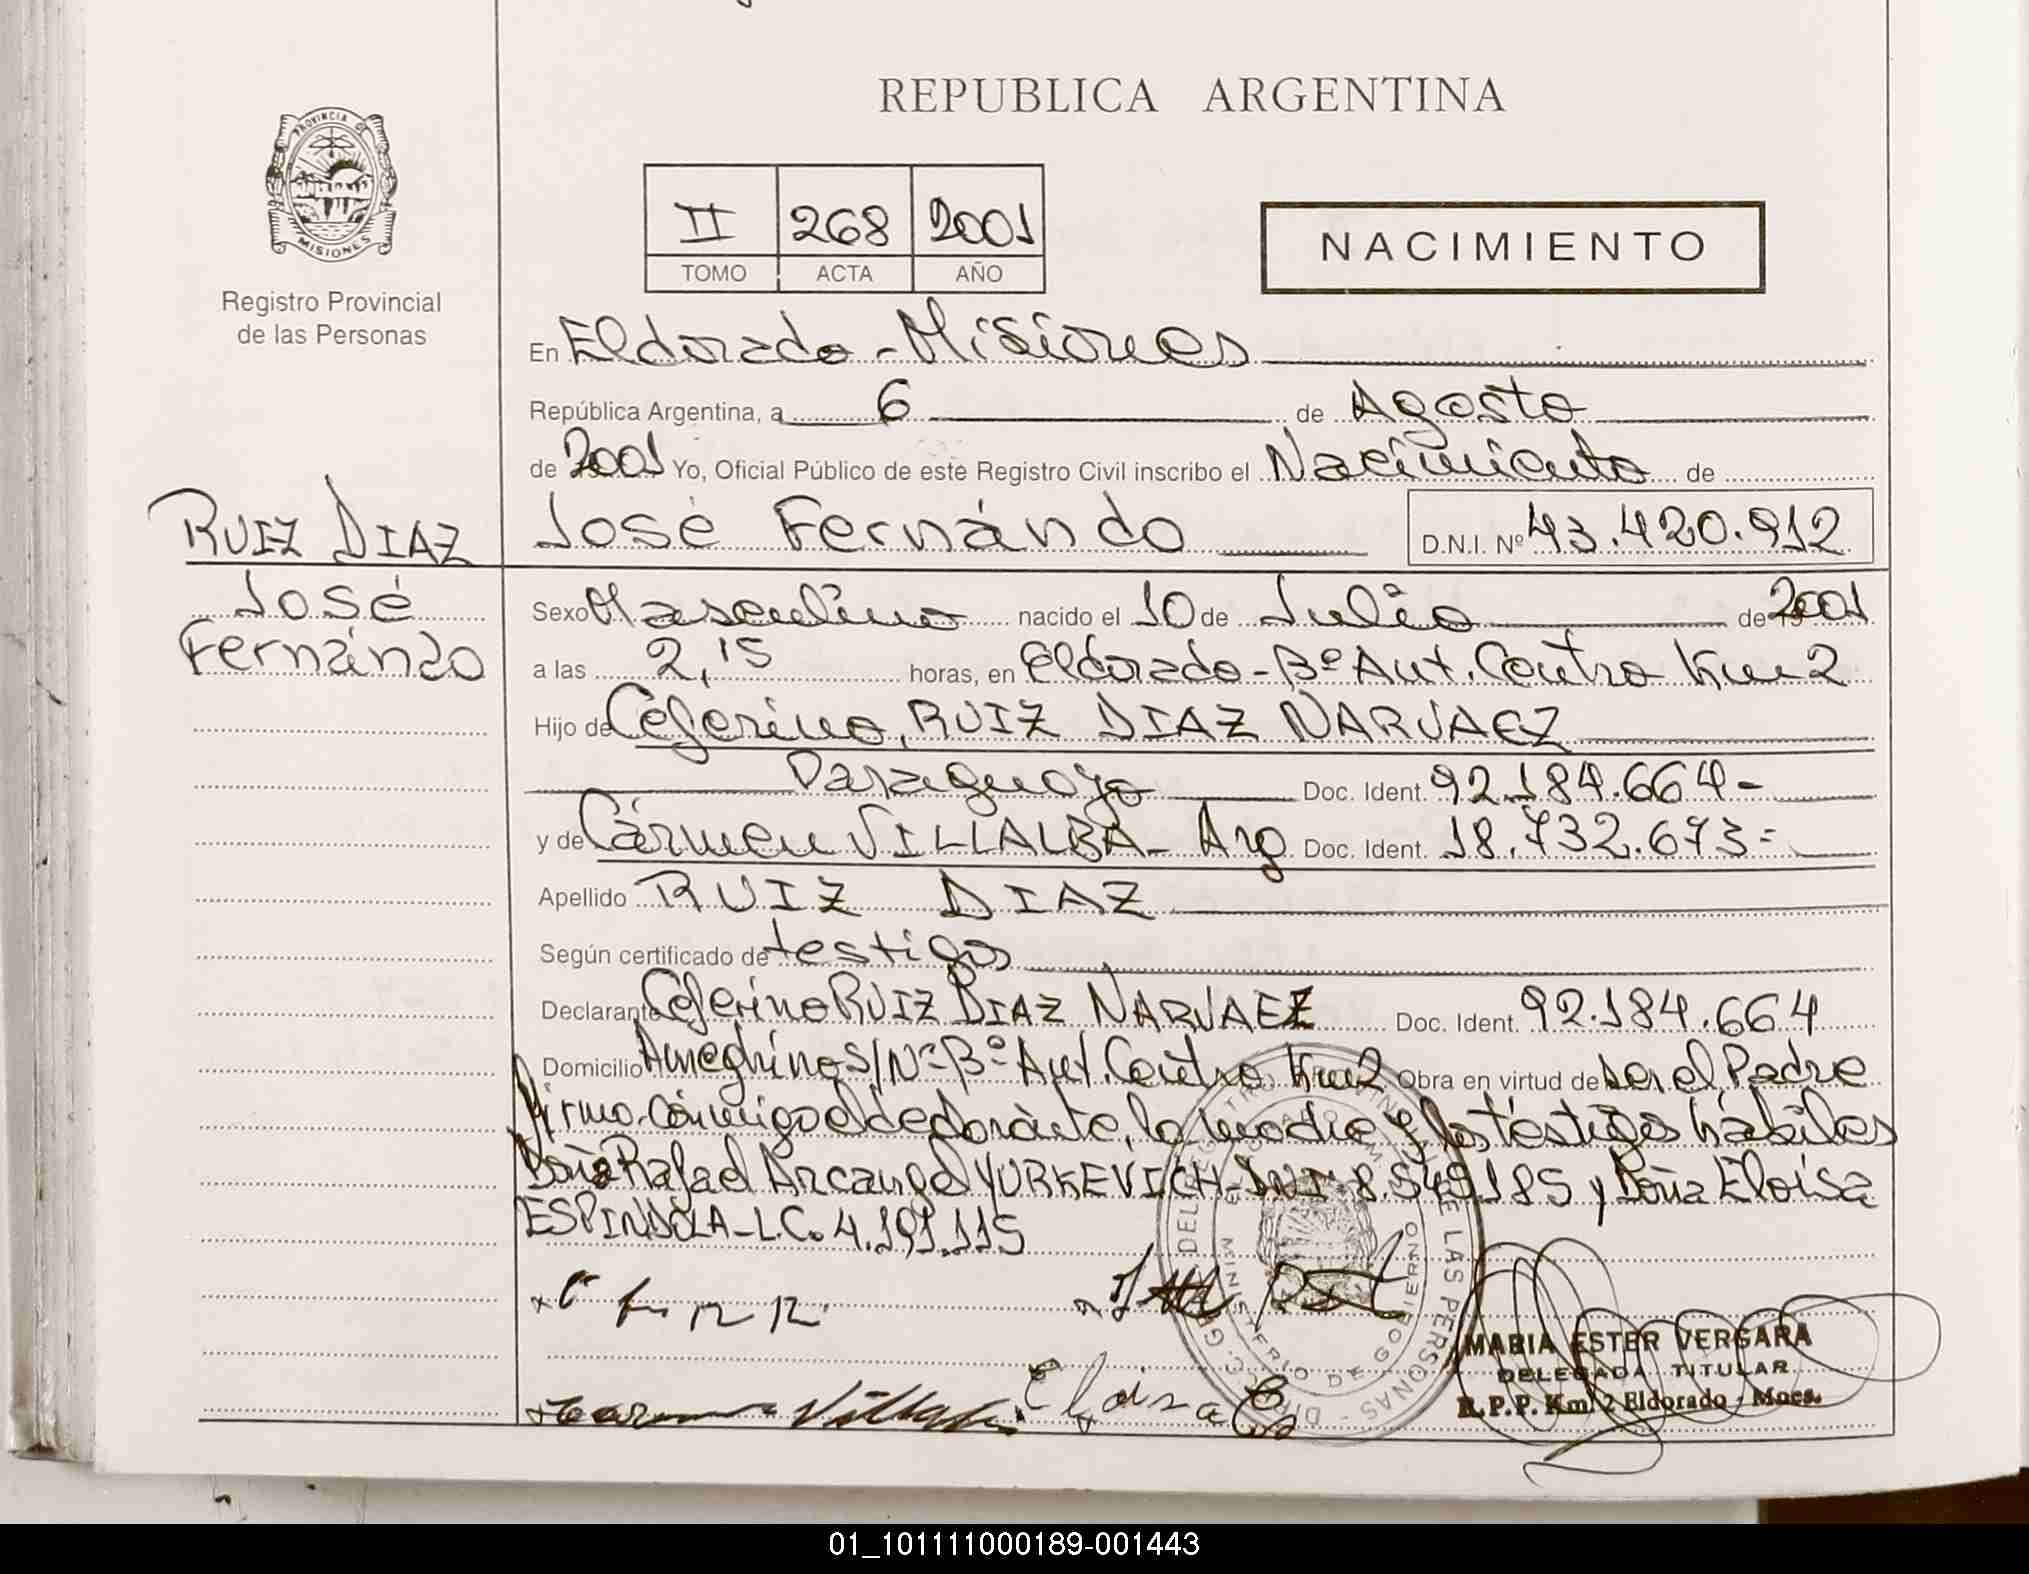 REPUBLICA ARGENTINA
PROVINCIA DE
MISIONES
Registro Provincial
de las Personas
II 268 2001
TOMO ACTA AÑO
NACIMIENTO
En Eldorado - Misiones
República Argentina, a 6 de Agosto
de 2001 Yo, Oficial Público de este Registro Civil inscribo el Nacimiento de
RUIZ DIAZ
José
Fernándo
José Fernándo D.N.I. Nº 43.420.912
Sexo Masculino nacido el 10 de Julio de 2001
a las 2,15 horas, en Eldorado - Bº Aut. Centro Km 2
Hijo de Ceferino, RUIZ DIAZ NARVAEZ
Paraguayo Doc. Ident. 92.184.664-
y de Cármen VILLALBA - Arg Doc. Ident. 18.732.673=
Apellido RUIZ DIAZ
Según certificado de testigos
Declarante Ceferino RUIZ DIAZ NARVAEZ Doc. Ident. 92.184.664
Domicilio Ameghino S/Nº Bº Aut. Centro Km 2 Obra en virtud de ser el Padre
Firma conmigo el declarante, la madre y los téstigos hábiles
Rafael Arcangel YURKEVICH - DNI 8.549.185 y Doña Eloisa
ESPINDOLA - L.C. 4.191.115
Eloisa
MARIA ESTER VERGARA
DELEGADA TITULAR
R.P.P. Km. 2 Eldorado - Mnes.
MINISTERIO DE GOBIERNO
DE LAS PERSONAS
01_101111000189-001443